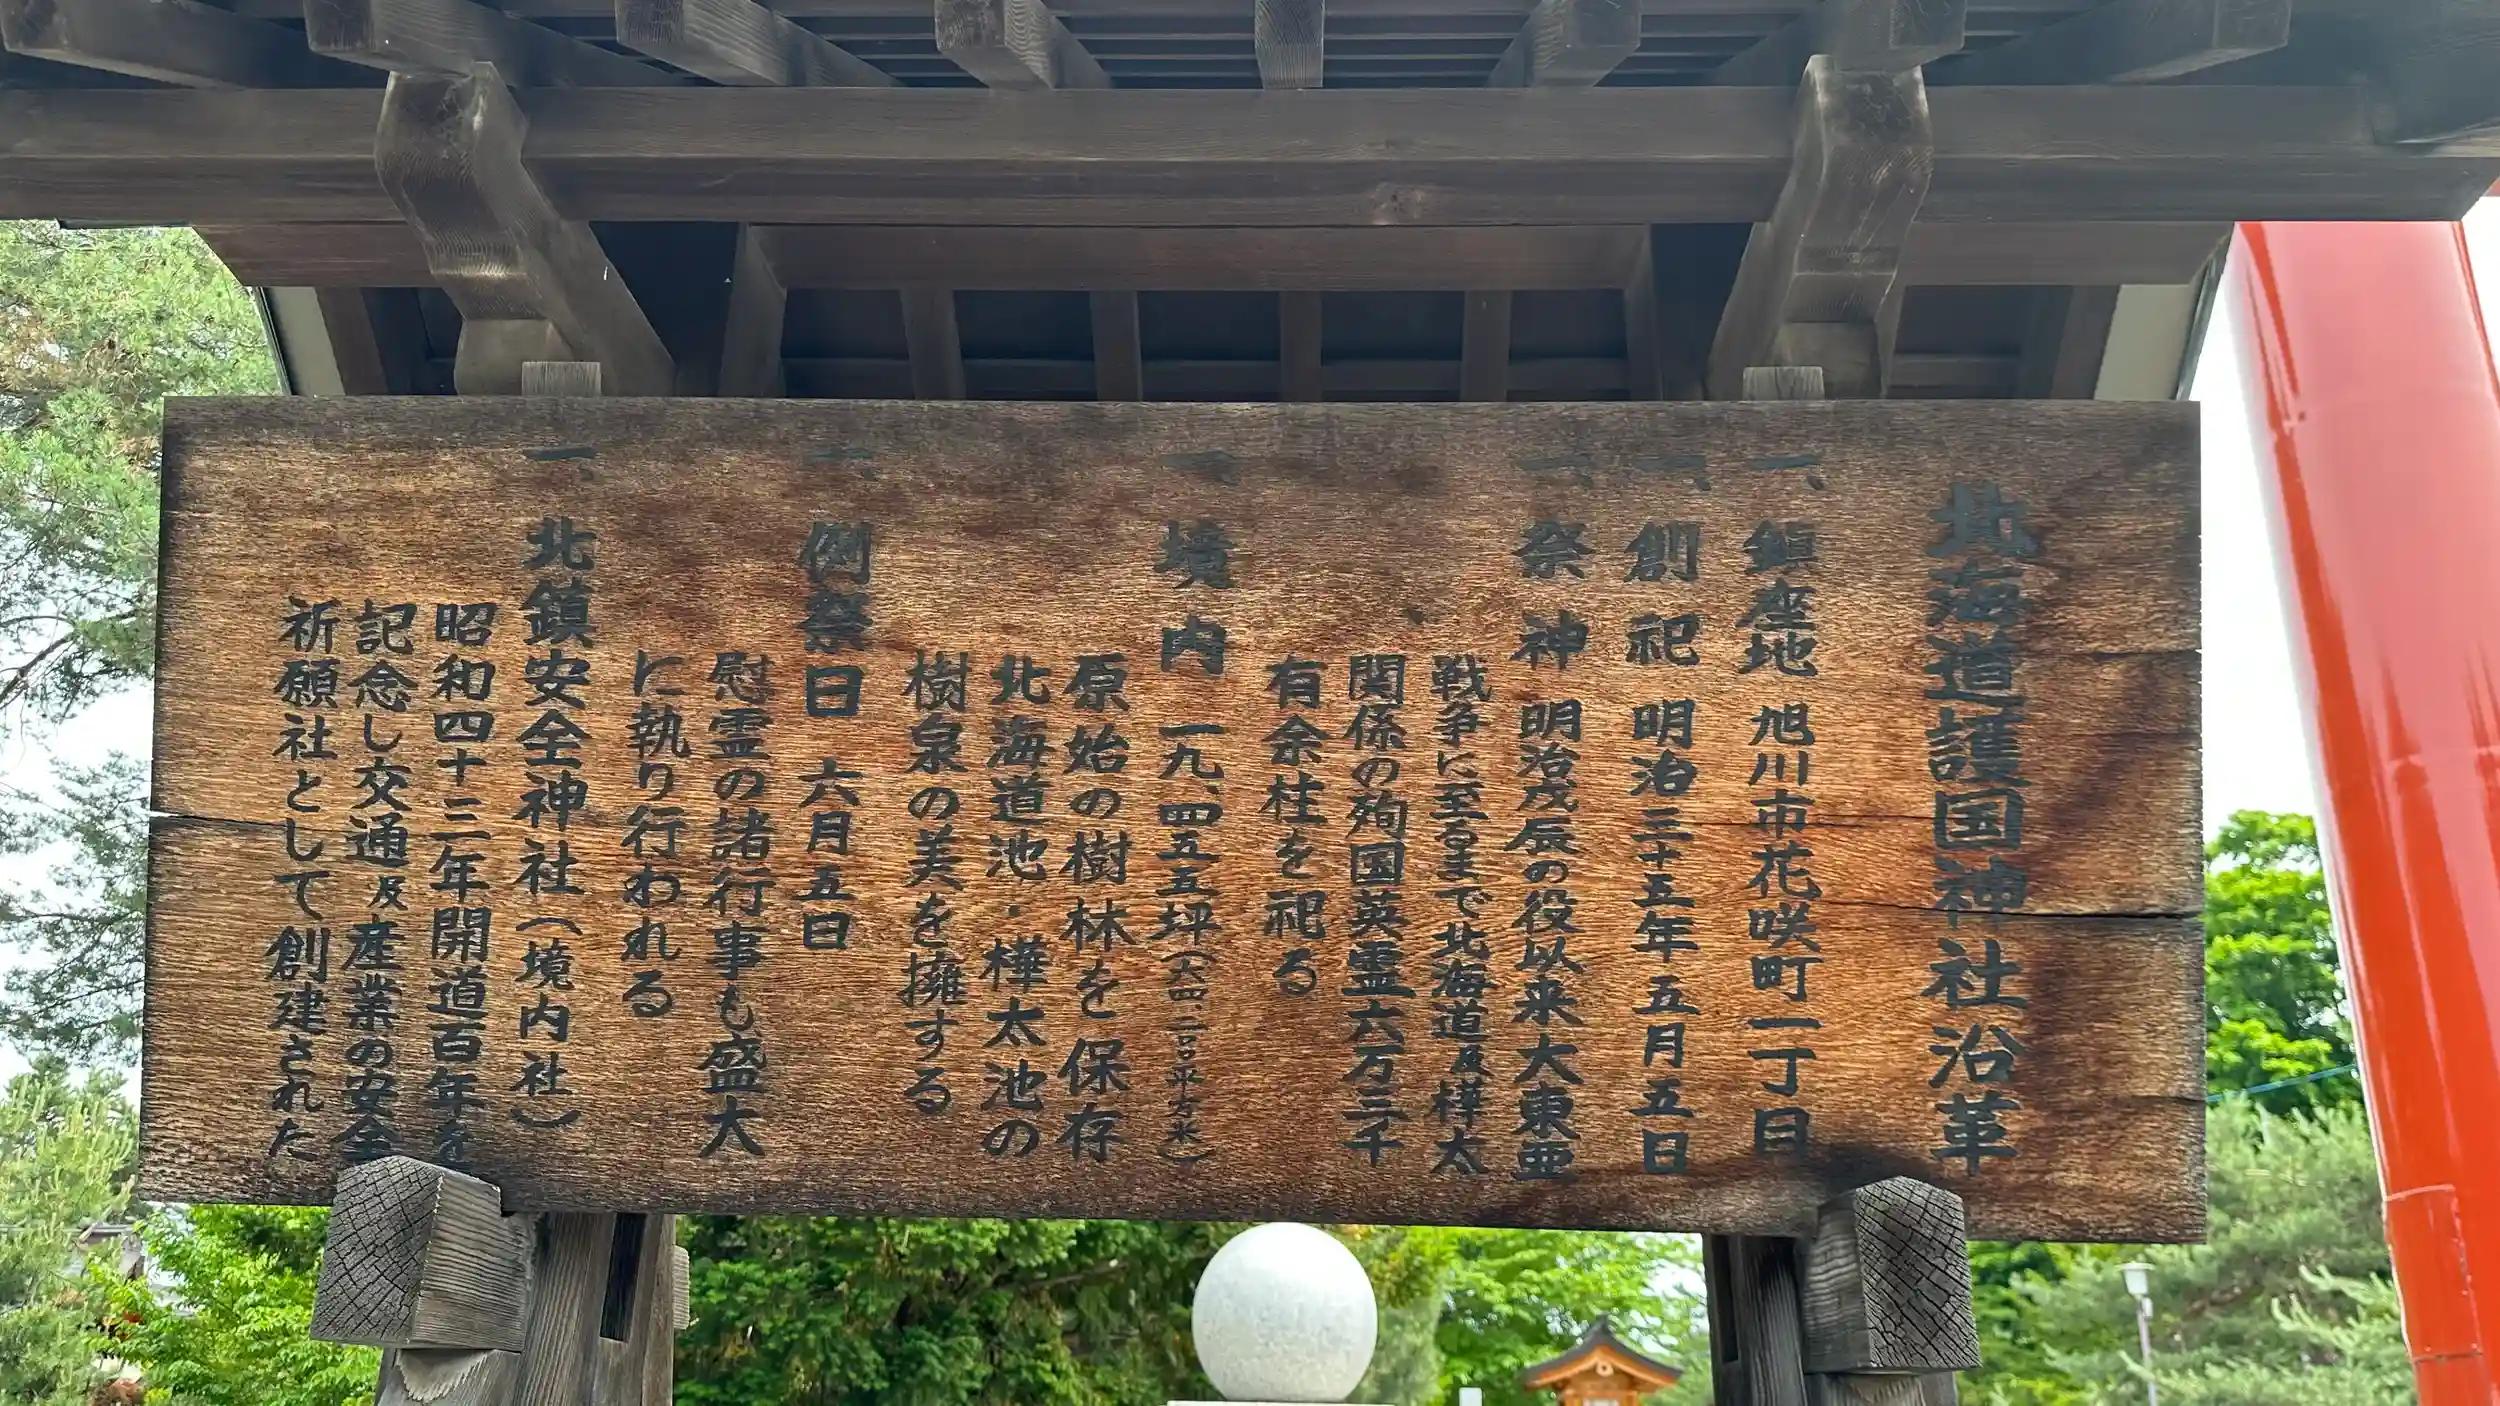 北海道護国神社沿革
一、鎮座地 旭川市花咲町一丁目
一、創祀 明治三十五年五月五日
一、祭神 明治戊辰の役以来大東亜
戦争に至るまで北海道及樺太
関係の殉国英霊六万三千
有余柱を祀る
一、境内 一九、四五五坪(六四、二〇〇平方米)
原始の樹林を保存
北海道池・樺太池の
樹泉の美を擁する
一、例祭日 六月五日
慰霊の諸行事も盛大
に執り行われる
一、北鎮安全神社(境内社)
昭和四十三年開道百年を
記念し交通及産業の安全
祈願社として創建された